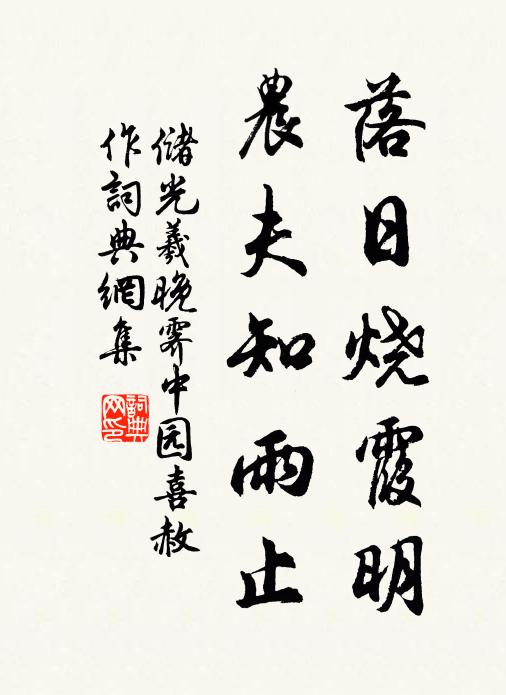 落日烧霞明
農夫知雨止
储光羲晚霁中园喜赦
作詞典網集
詞典
网印